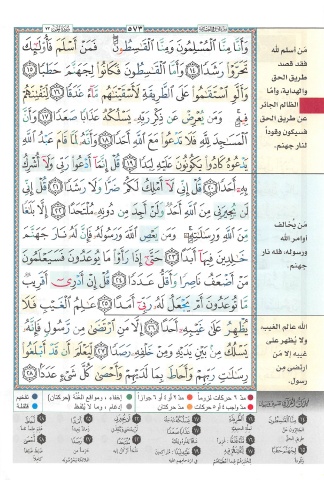 ٥٧٣
وَأَنَّا مِنَّا الْمُسْلِمُونَ وَمِنَّا الْقَاسِطُونَ فَمَنْ أَسْلَمَ فَأُولَٰئِكَ
تَحَرَّوْا رَشَدًا ١٤ وَأَمَّا الْقَاسِطُونَ فَكَانُوا لِجَهَنَّمَ حَطَبًا ١٥
وَأَلَّوِ اسْتَقَامُوا عَلَى الطَّرِيقَةِ لَأَسْقَيْنَاهُم مَّاءً غَدَقًا ١٦ لِنَفْتِنَهُمْ
فِيهِ وَمَن يُعْرِضْ عَن ذِكْرِ رَبِّهِ يَسْلُكْهُ عَذَابًا صَعَدًا ١٧ وَأَنَّ
الْمَسَاجِدَ لِلَّهِ فَلَا تَدْعُوا مَعَ اللَّهِ أَحَدًا ١٨ وَأَنَّهُ لَمَّا قَامَ عَبْدُ اللَّهِ
يَدْعُوهُ كَادُوا يَكُونُونَ عَلَيْهِ لِبَدًا ١٩ قُلْ إِنَّمَا أَدْعُو رَبِّي وَلَا أُشْرِكُ
بِهِ أَحَدًا ٢٠ قُلْ إِنِّي لَا أَمْلِكُ لَكُمْ ضَرًّا وَلَا رَشَدًا ٢١ قُلْ إِنِّي
لَن يُجِيرَنِي مِنَ اللَّهِ أَحَدٌ وَلَنْ أَجِدَ مِن دُونِهِ مُلْتَحَدًا ٢٢ إِلَّا بَلَاغًا
مِّنَ اللَّهِ وَرِسَالَاتِهِ وَمَن يَعْصِ اللَّهَ وَرَسُولَهُ فَإِنَّ لَهُ نَارَ جَهَنَّمَ
خَالِدِينَ فِيهَا أَبَدًا ٢٣ حَتَّىٰ إِذَا رَأَوْا مَا يُوعَدُونَ فَسَيَعْلَمُونَ
مَنْ أَضْعَفُ نَاصِرًا وَأَقَلُّ عَدَدًا ٢٤ قُلْ إِنْ أَدْرِي أَقَرِيبٌ
مَّا تُوعَدُونَ أَمْ يَجْعَلُ لَهُ رَبِّي أَمَدًا ٢٥ عَالِمُ الْغَيْبِ فَلَا
يُظْهِرُ عَلَىٰ غَيْبِهِ أَحَدًا ٢٦ إِلَّا مَنِ ارْتَضَىٰ مِن رَّسُولٍ فَإِنَّهُ
يَسْلُكُ مِن بَيْنِ يَدَيْهِ وَمِنْ خَلْفِهِ رَصَدًا ٢٧ لِّيَعْلَمَ أَن قَدْ أَبْلَغُوا
رِسَالَاتِ رَبِّهِمْ وَأَحَاطَ بِمَا لَدَيْهِمْ وَأَحْصَىٰ كُلَّ شَيْءٍ عَدَدًا ٢٨
مَن أسلم لله
فقد قصد
طريق الحق
والهداية، وأمّا
الظالم الجائر
عن طريق الحق
فسيكون وقوداً
لنار جهنم.
مَن يُخالف
أوامر الله
ورسوله، فله نار
جهنم.
الله عالم الغيب،
ولا يُظهر على
غيبه إلا مَن
ارتضى من
رسول.